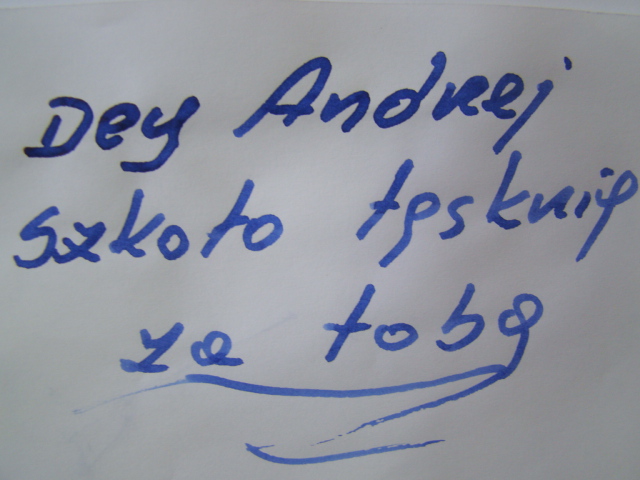 Dey Andrej
szkoło tęsknię
za tobą